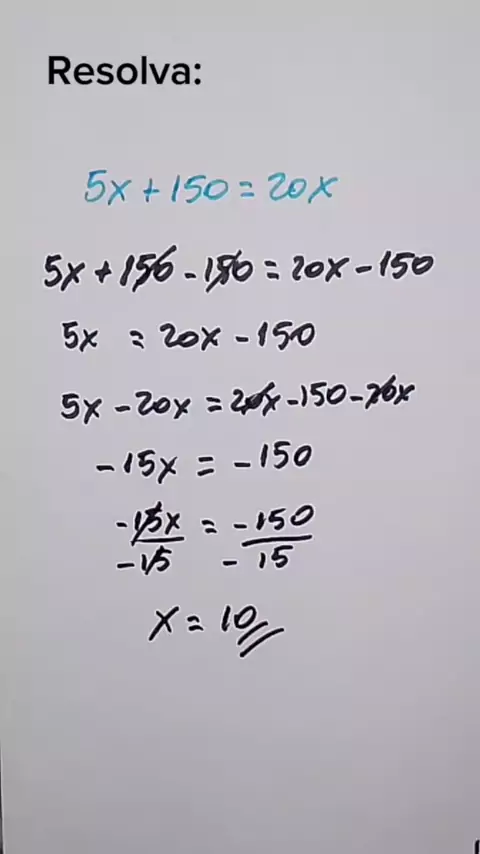 Resolva:
5x + 150 = 20x
5x + 150 - 150 = 20x - 150
5x = 20x - 150
5x - 20x = 20x - 150 - 20x
-15x = -150
-15x/-15 = -150/-15
x = 10